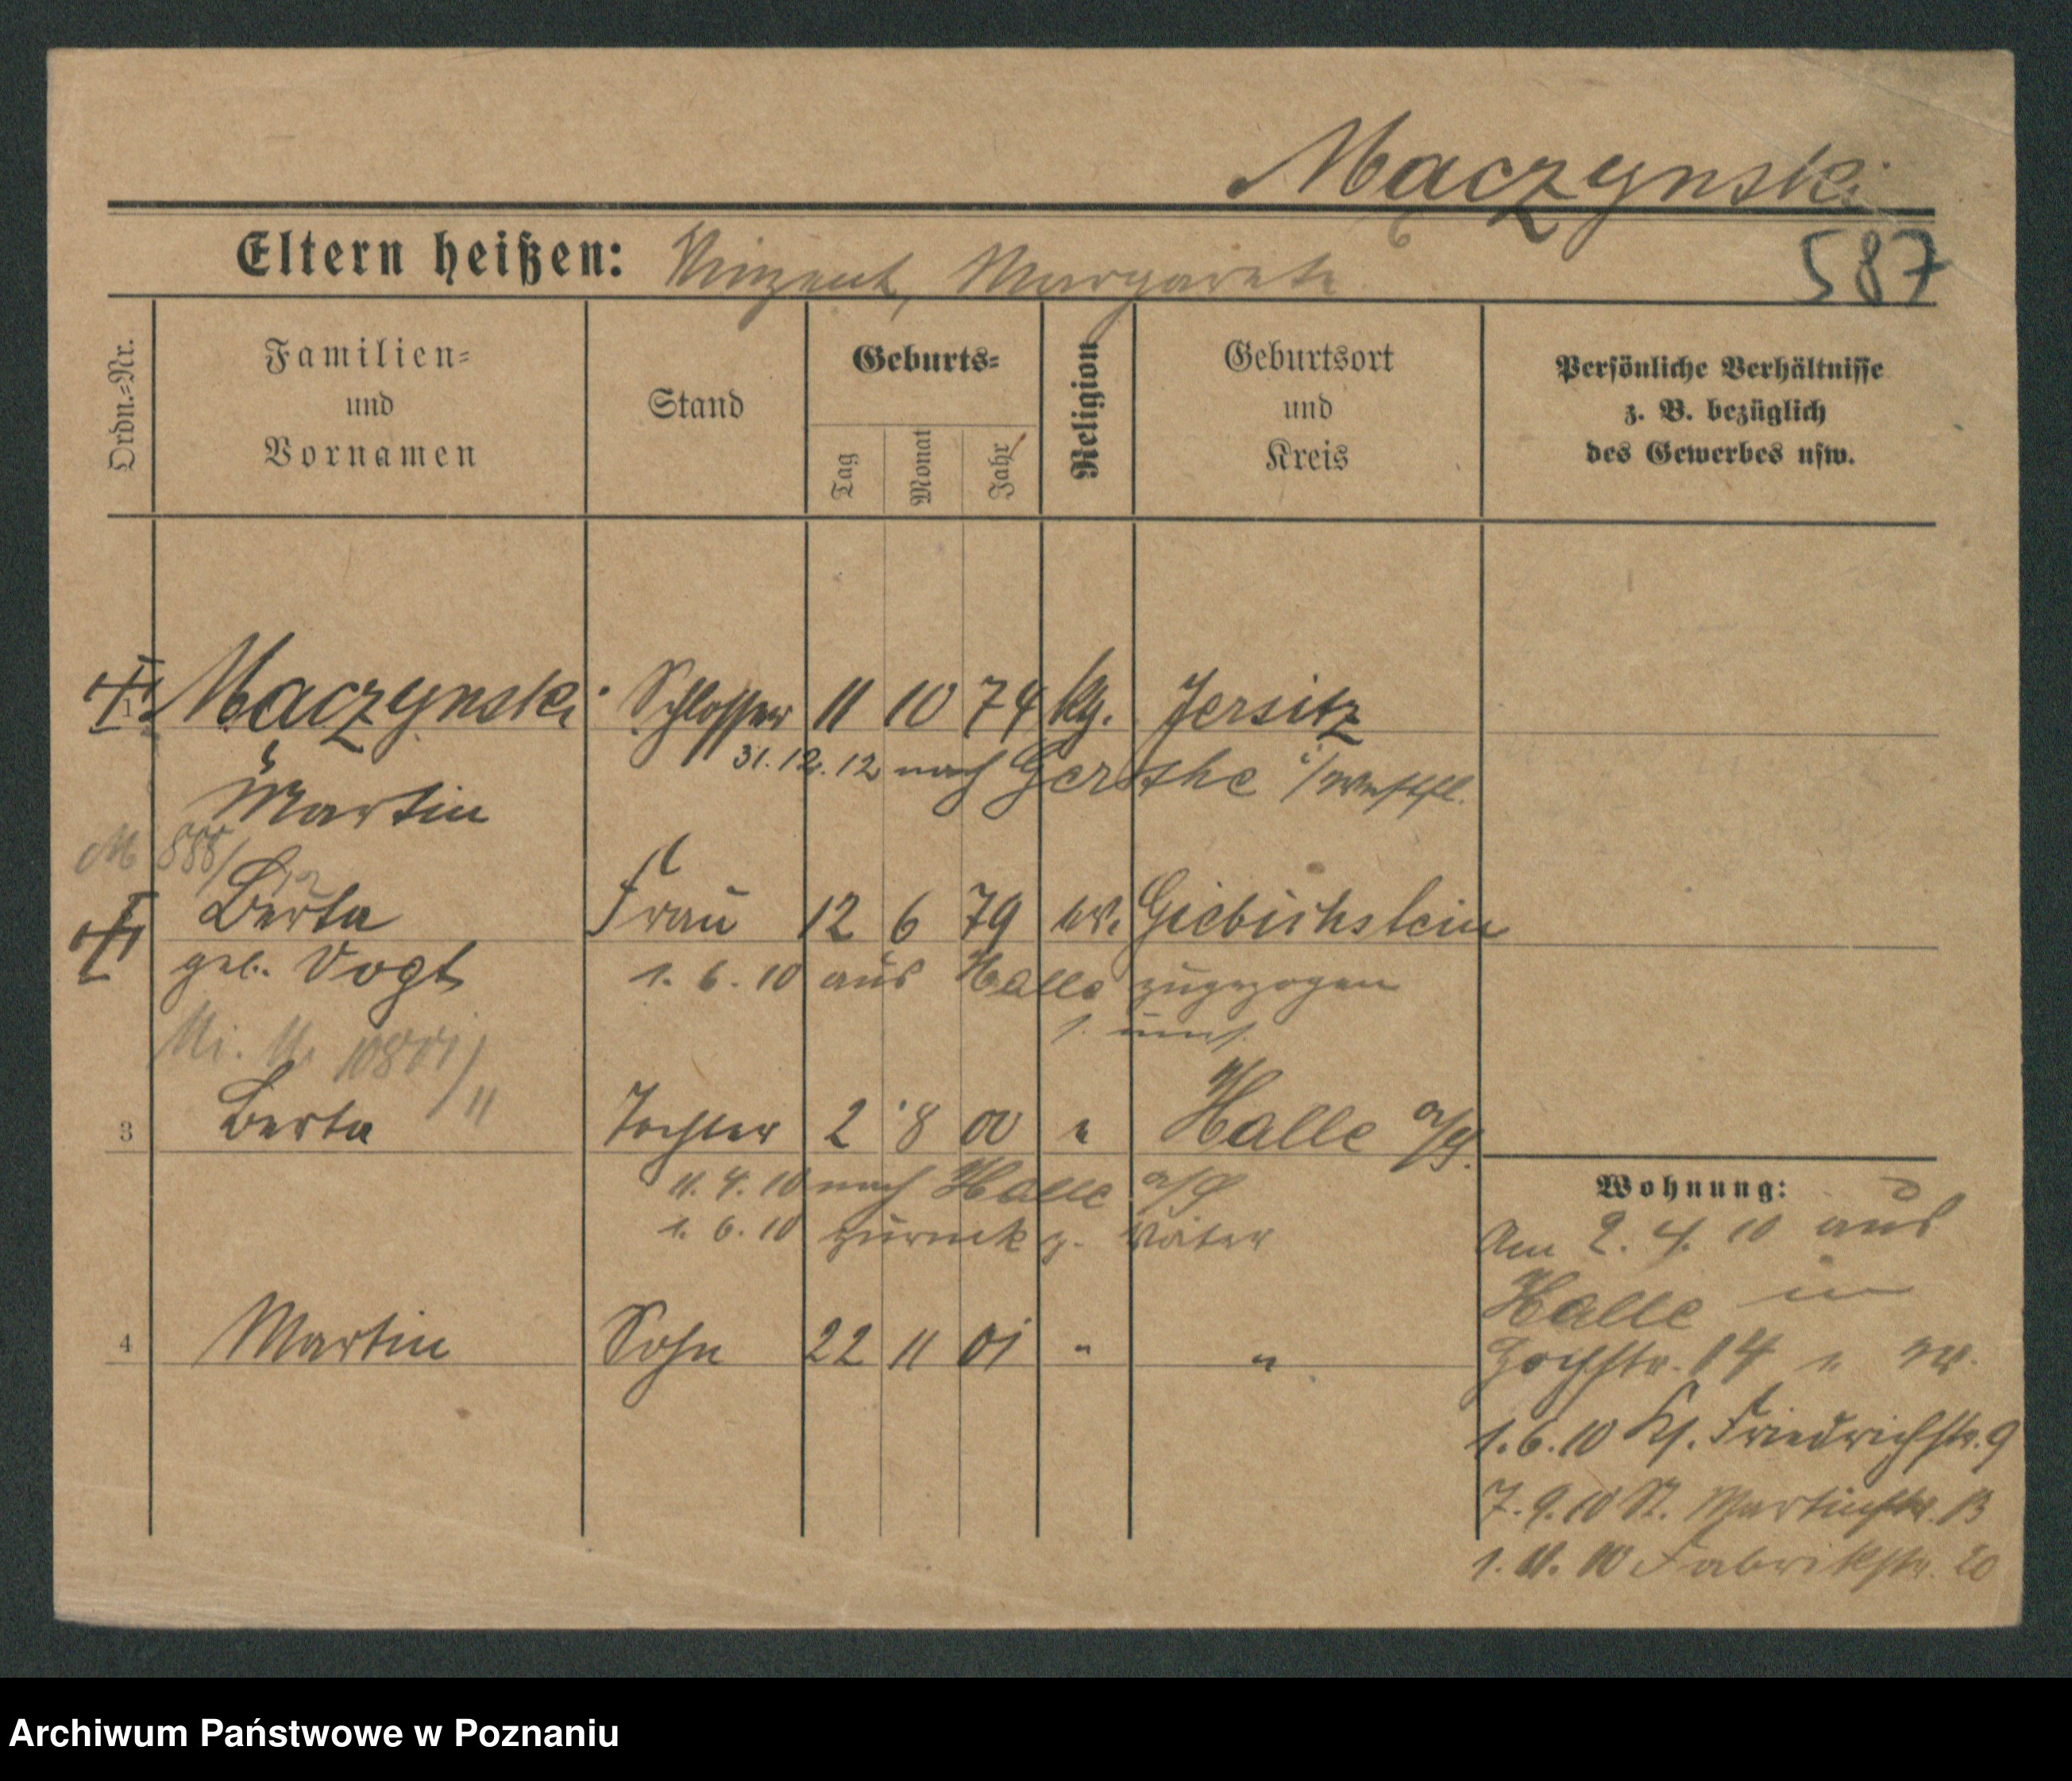 Maczynski
Eltern heißen: Vinzent, Margarete
587
Ordn.=Nr.
Familien=
und
Vornamen
Stand
Geburts=
Tag
Monat
Jahr
Religion
Geburtsort
und
Kreis
Persönliche Verhältnisse
z. B. bezüglich
des Gewerbes usw.
1 Maczynski Schlosser 11 10 74 kg. Jersitz
31.12.12 nach Gerthe i/Westfl.
Martin
M 888/12
Berta Frau 12 6 79 ev. Giebichstein
geb. Vogt 1.6.10 aus Halle zugezogen
10801/11
3 Berta Tochter 2 8 00 " Halle a/S.
11.4.10 nach Halle a/S
1.6.10 zurück z. Vater
4 Martin Sohn 22 11 01 " "
Wohnung:
Am 2.4.10 aus
Halle in
Hochstr. 14
1.6.10 Kl. Friedrichstr. 9
7.9.10 St. Martinstr. 13
1.11.10 Fabrikstr. 20
Archiwum Państwowe w Poznaniu